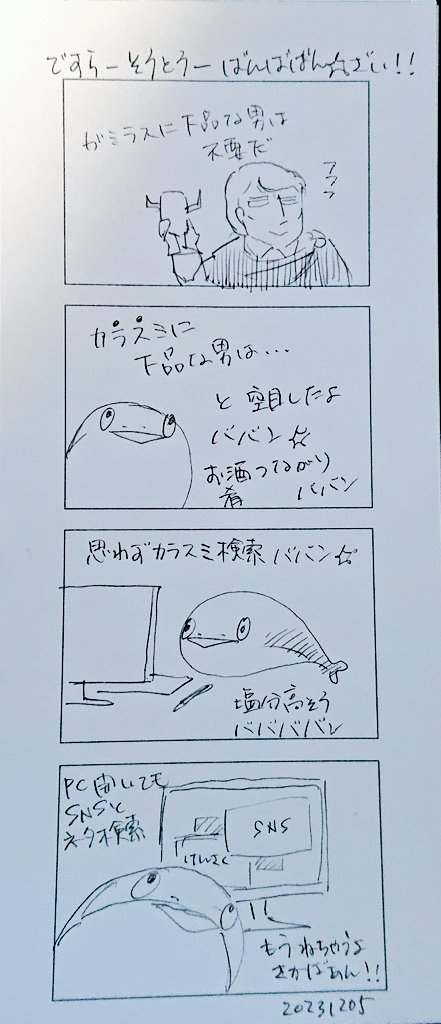 ですらーそうとうーばんばばん☆ざい!!
ガミラスに下品な男は
不要だ
フフフ
カラスミに
下品な男は...
と空目したよ
ババン☆
お酒つながり
肴 ババン
思わずカラスミ検索ババン☆
塩分高そう
ババババン
PC開いても
SNSと
ネタ検索
SNS
けんさく
もうねちゃうよ
さかばあん!!
20231205